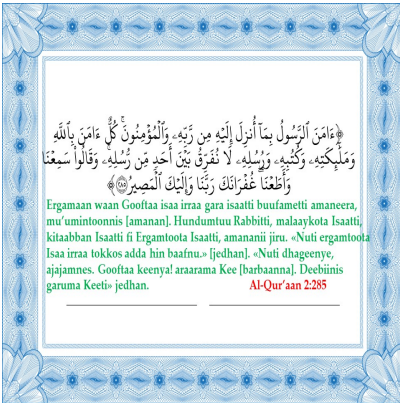 ﴿ءَامَنَ ٱلرَّسُولُ بِمَآ أُنزِلَ إِلَيْهِ مِن رَّبِّهِۦ وَٱلْمُؤْمِنُونَ ۚ كُلٌّ ءَامَنَ بِٱللَّهِ
وَمَلَٰٓئِكَتِهِۦ وَكُتُبِهِۦ وَرُسُلِهِۦ لَا نُفَرِّقُ بَيْنَ أَحَدٍ مِّن رُّسُلِهِۦ ۚ وَقَالُوا۟ سَمِعْنَا
وَأَطَعْنَا ۖ غُفْرَانَكَ رَبَّنَا وَإِلَيْكَ ٱلْمَصِيرُ ٢٨٥﴾
Ergamaan waan Gooftaa isaa irraa gara isaatti buufametti amaneera,
mu'umintoonnis [amanan]. Hundumtuu Rabbitti, malaaykota Isaatti,
kitaabban Isaatti fi Ergamtoota Isaatti, amananii jiru. «Nuti ergamtoota
Isaa irraa tokkos adda hin baafnu.» [jedhan]. «Nuti dhageenye,
ajajamnes. Gooftaa keenya! araarama Kee [barbaanna]. Deebiinis
garuma Keeti» jedhan. Al-Qur'aan 2:285